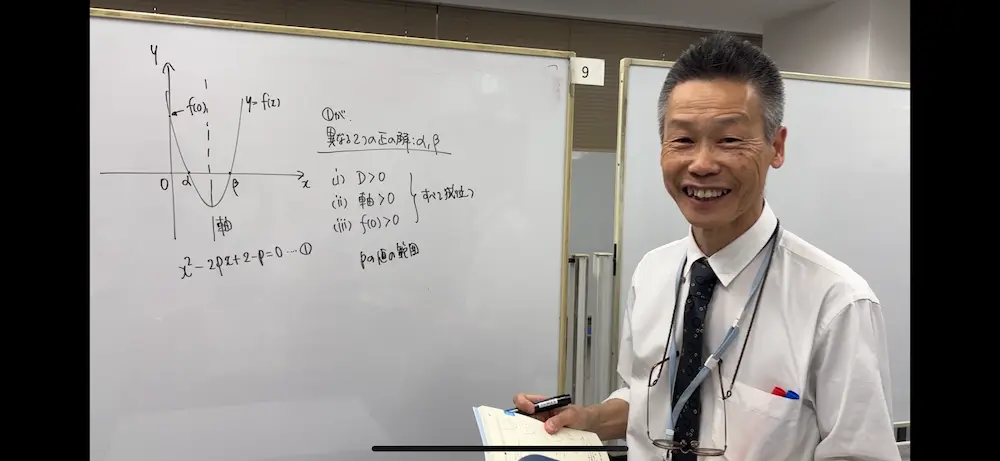 y
f(0)
y=f(x)
0
α
β
x
軸
x²-2px+2-p=0…①
①が、
異なる2つの正の解:α,β
(i) D>0
(ii) 軸>0
(iii) f(0)>0
すべて成立
pの値の範囲
9